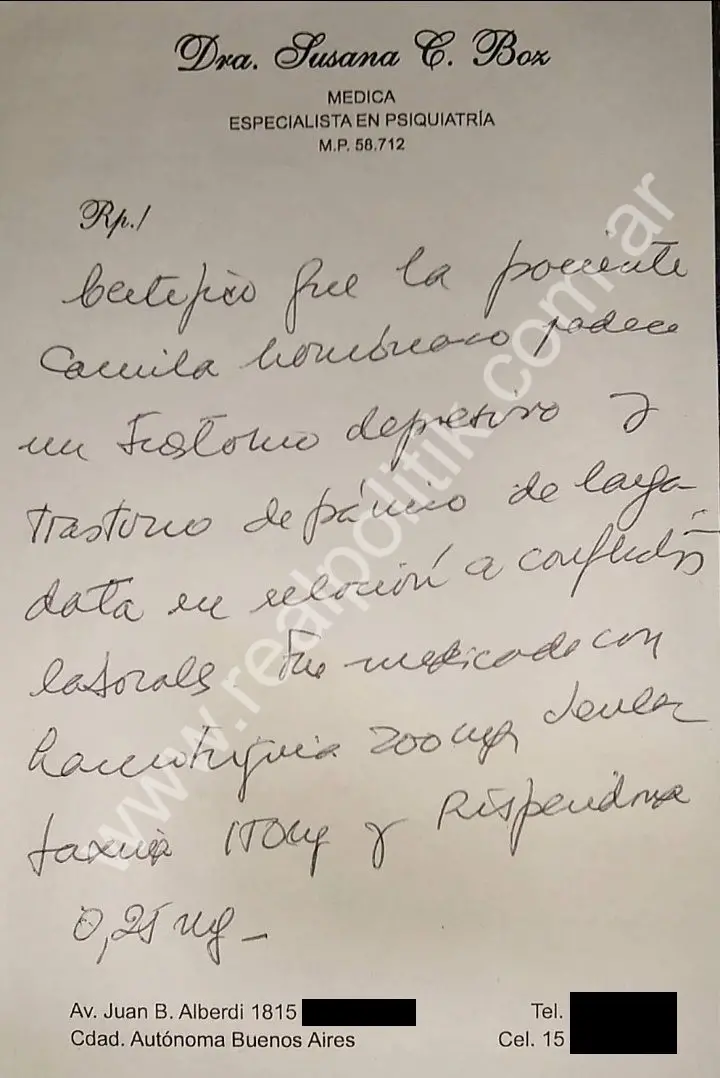 Dra. Susana C. Boz
MEDICA
ESPECIALISTA EN PSIQUIATRÍA
M.P. 58.712
Rp./
Certifico que la paciente
Camila padece
un trastorno depresivo y
trastorno de pánico de larga
data en relación a conflictos
laborales Fue medicada con
Lamotrigina 200 mg
150 mg y Risperidona
0,25 mg -
Av. Juan B. Alberdi 1815
Cdad. Autónoma Buenos Aires
Tel.
Cel. 15
www.realpolitik.com.ar